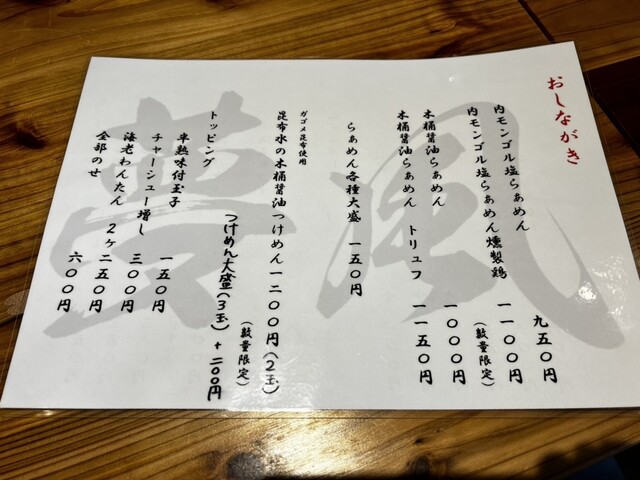 おしながき
内モンゴル塩らぁめん 九五〇円
内モンゴル塩らぁめん燻製鶏 一一〇〇円
(数量限定)
木桶醤油らぁめん 一〇〇〇円
木桶醤油らぁめん トリュフ 一一五〇円
らぁめん各種大盛 一五〇円
ガゴメ昆布使用
昆布水の木桶醤油つけめん 一二〇〇円(2玉)
(数量限定)
つけめん大盛(3玉) + 二〇〇円
トッピング
半熟味付玉子 一五〇円
チャーシュー増し 三〇〇円
海老わんたん 2ヶ 二五〇円
全部のせ 六〇〇円
夢風